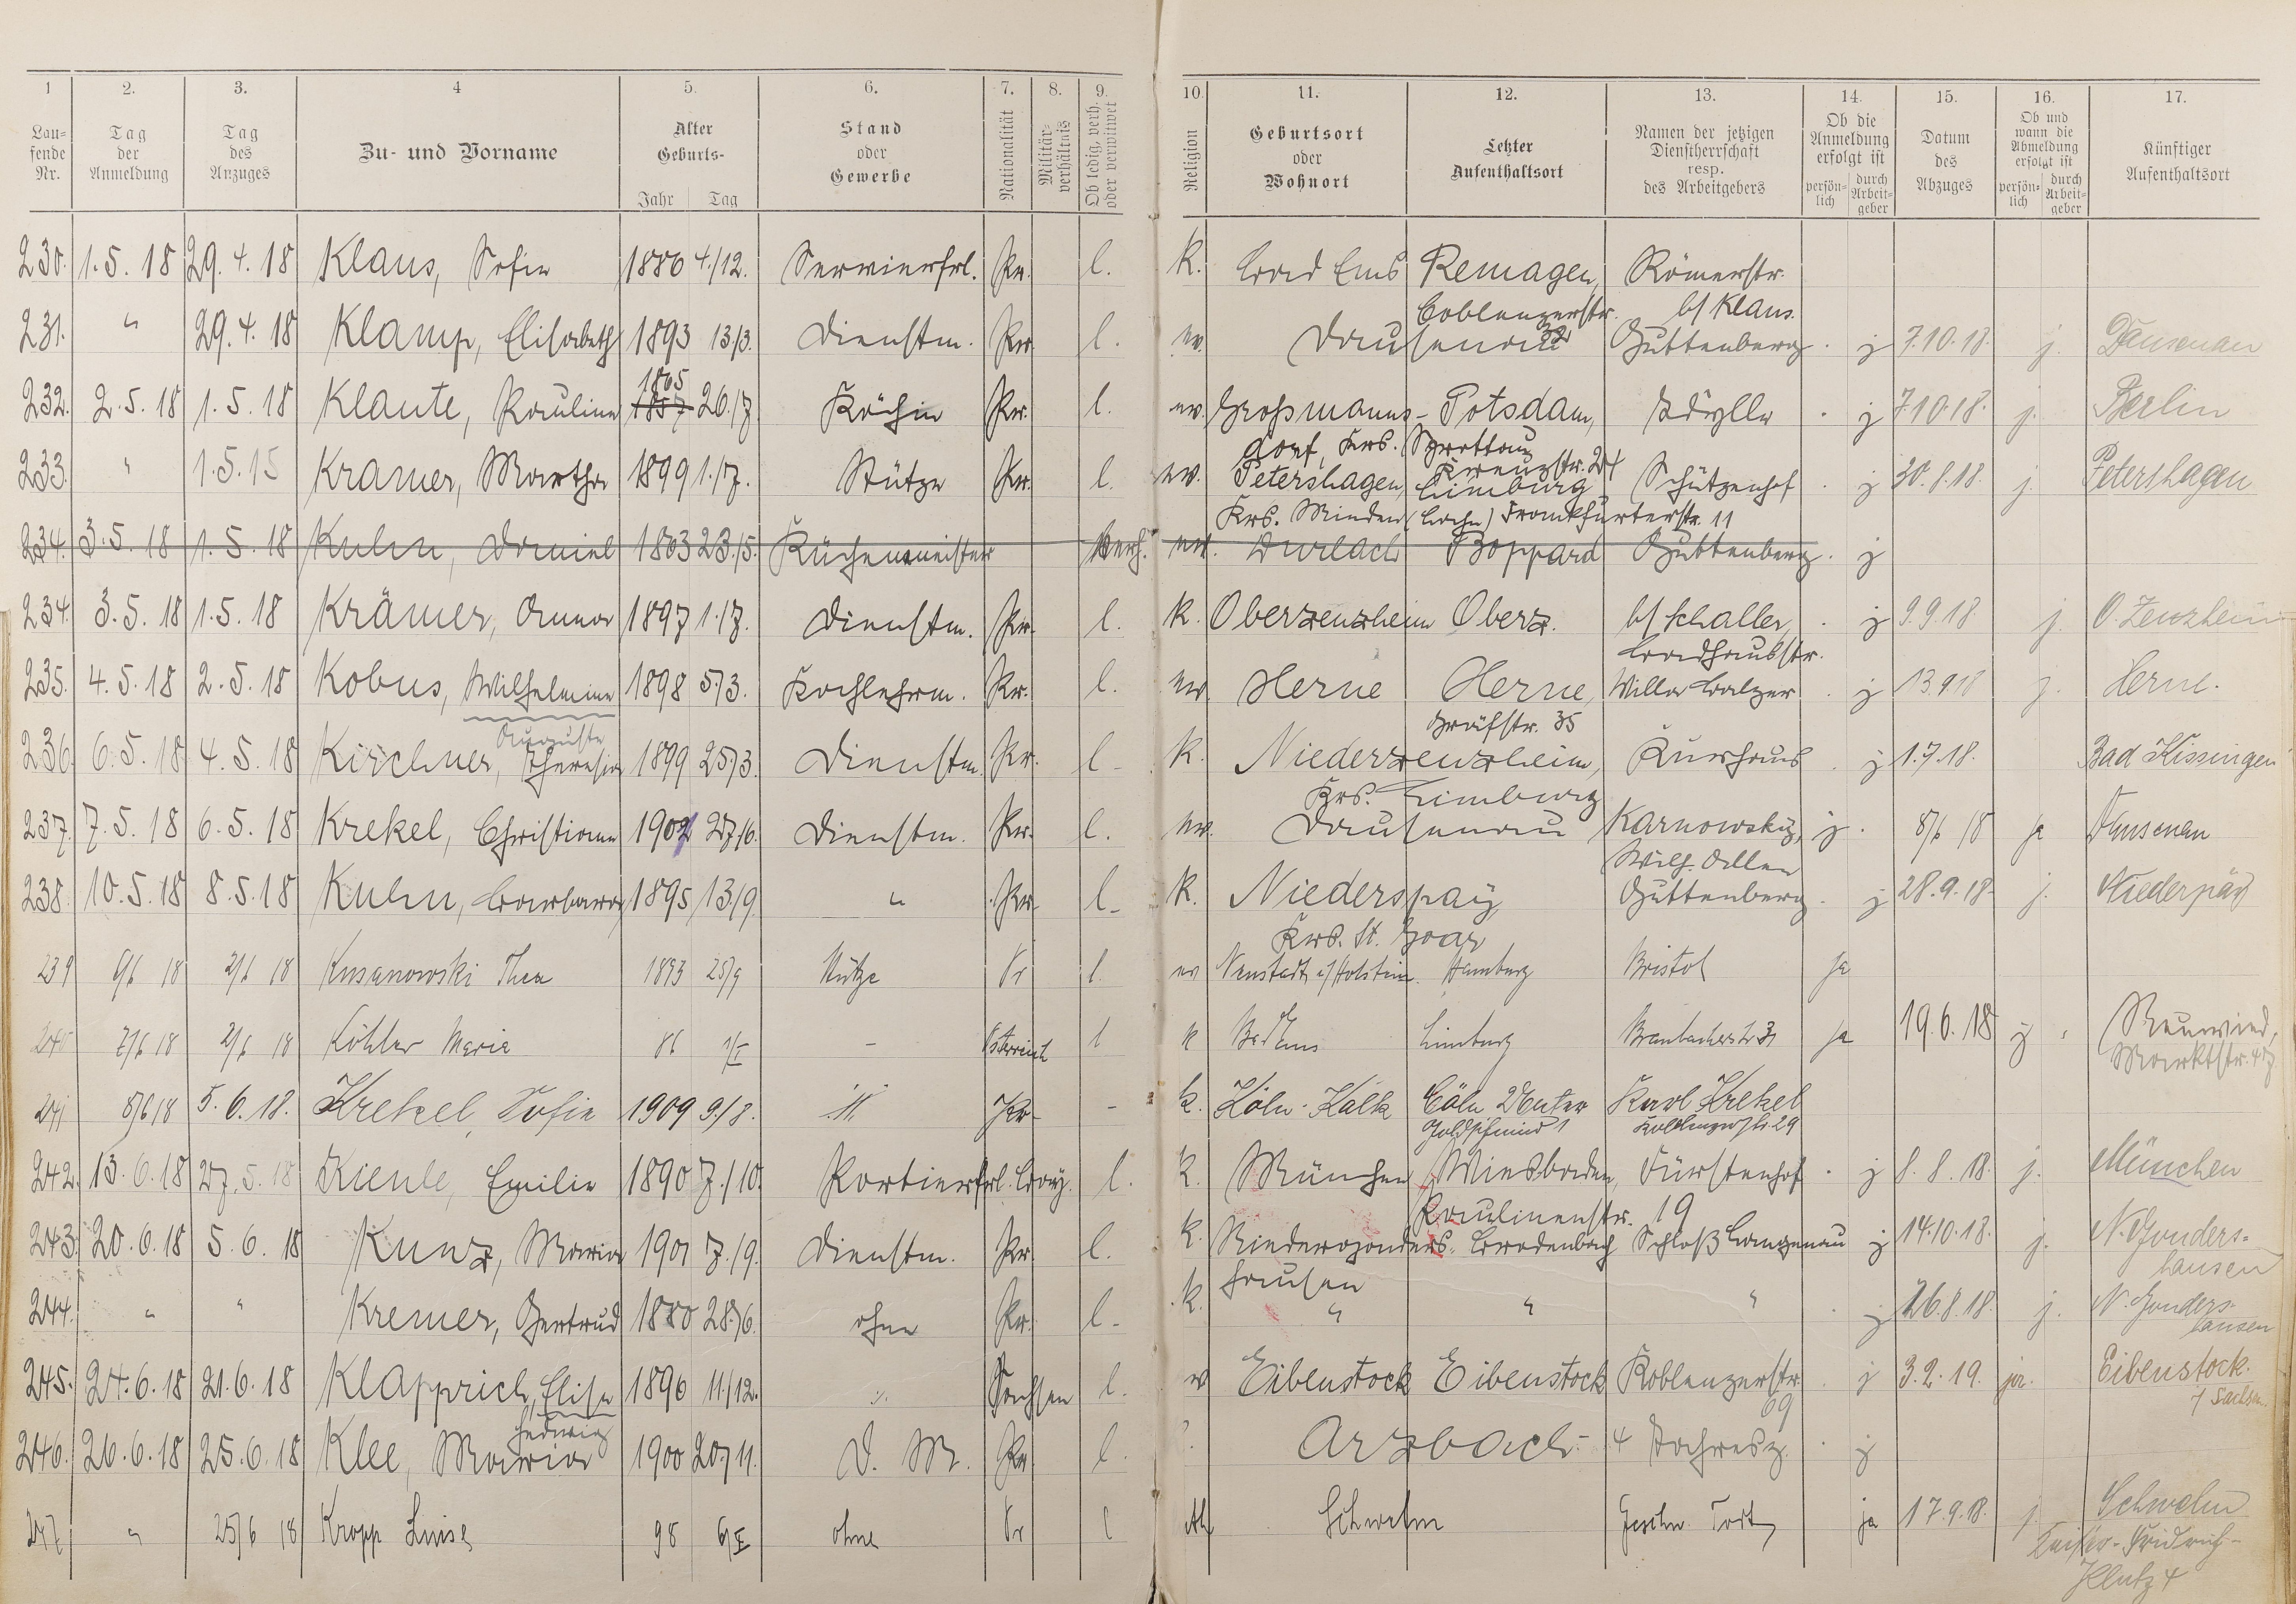 1 2. 3. 4 5. 6. 7. 8. 9. 10. 11. 12. 13. 14. 15. 16. 17.
Laufende Nr. Tag der Anmeldung Tag des Anzuges Zu- und Vorname Alter Geburts- Jahr Tag Stand oder Gewerbe Nationalität Militärverhältnis Ob ledig, verh. oder verwitwet Religion Geburtsort oder Wohnort Letzter Aufenthaltsort Namen der jetzigen Dienstherrschaft resp. des Arbeitgebers Ob die Anmeldung erfolgt ist persönlich durch Arbeitgeber Datum des Abzuges Ob und wann die Abmeldung erfolgt ist persönlich durch Arbeitgeber Künftiger Aufenthaltsort
230. 1.5.18 29.4.18 Klaus, Sofie 1886 4./12. Servierfrl. Pr. l. K. Bad Ems Remagen, Römerstr.
Coblenzerstr. 32 b/ Klaus.
231. " 29.4.18 Klamp, Elisabeth 1893 13/3. Dienstm. Pr. l. ev. Dausenau Guttenberg. j 7.10.18. j. Dausenau
232. 2.5.18 1.5.18 Klaute, Pauline 1865 1857 26./7. Köchin Pr. l. ev. Großmanns- Potsdam, Idylle j 7.10.18. j. Berlin
dorf, Krs. Sprottau Kreuzstr. 24
233. " 1.5.15 Kramer, Martha 1899 1./7. Stütze Pr. l. ev. Petershagen, Limburg Schützenhof j 30.8.18. j. Petershagen
Krs. Minden (Lahn) Frankfurterstr. 11
234. 3.5.18 1.5.18 Kuhn, Daniel 1863 23./5. Küchenmeister Verh. ev. Durlach Boppard Guttenberg. j
234. 3.5.18 1.5.18 Krämer, Anna 1897 1./7. Dienstm. Pr. l. K. Oberzeuzheim Oberz. b/ Schaller, j 9.9.18 j. O. Zeuzheim
Badhausstr.
235. 4.5.18 2.5.18 Kobus, Wilhelmine 1898 5./3. Kochlehrm. Pr. l. ev. Herne Herne, Villa Balzer j 13.9.18 j. Herne.
Auguste Gräfstr. 35
236. 6.5.18 4.5.18 Kirchner, Theresia 1899 25/3. Dienstm. Pr. l. K. Niederzeuzheim, Kurhaus j 1.7.18. Bad Kissingen
Krs. Limburg
237. 7.5.18 6.5.18 Krekel, Christiane 1902 27./6. Dienstm. Pr. l. ev. Dausenau Karnowsky, j. 8/6 18 ja Dausenau
Wilh. Allee
238. 10.5.18 8.5.18 Kuhn, Barbara 1895 13/9. " Pr. l. K. Niederspay Guttenberg. j 28.9.18. j. Niederspay
Krs. St. Goar
239 9/6 18 2/6 18 Kusanowski Thea 1893 25/9 Stütze Pr l. ev Neustadt i/Holstein. Hamburg Bristol ja
240 7/6 18 2/6 18 Köhler Maria 86 1/I - Österreich l k Bad Ems Limburg Braubacherstr 31 ja 19.6.18 j. Neuwied,
Marktstr. 47
241 8/6 18 5.6.18. Krekel, Sofie 1909 9./8. Pr. - k. Köln-Kalk Cöln Deutz Karl Krekel
Koblenzerstr. 29
242. 13.6.18 27.5.18 Kienle, Emilie 1890 7./10. Portierfrl. Bay. l. K. München Wiesbaden, Fürstenhof j 8.8.18. j. München
Paulinenstr. 19
243. 20.6.18 5.6.18 Kunz, Maria 1901 7./9. Dienstm. Pr. l. K. Niedergonders- Brodenbach Schloß Langenau j 14.10.18. j. N. Gonders-
hausen hausen
244. " " Kremer, Gertrud 1880 28./6. ohne Pr. l. K. " " " j 26.8.18. j. N. Gonders-
hausen
245. 24.6.18 21.6.18 Klapprich, Elise 1890 11./12. " Sachsen l. ev Eibenstock Eibenstock Koblenzerstr. j 3.2.19. ja. Eibenstock.
Hedwig 69 / Sachsen
246. 26.6.18 25.6.18 Klee, Maria 1900 20./11. D. M. Pr. l. Arzbach 4 j
247 " 25/6 18 Kropp Luise 98 6/X ohne Pr l Schwelm Geschw. ja 17.9.18. j Schwelm
Kaiser-Fridrich-
Platz 4